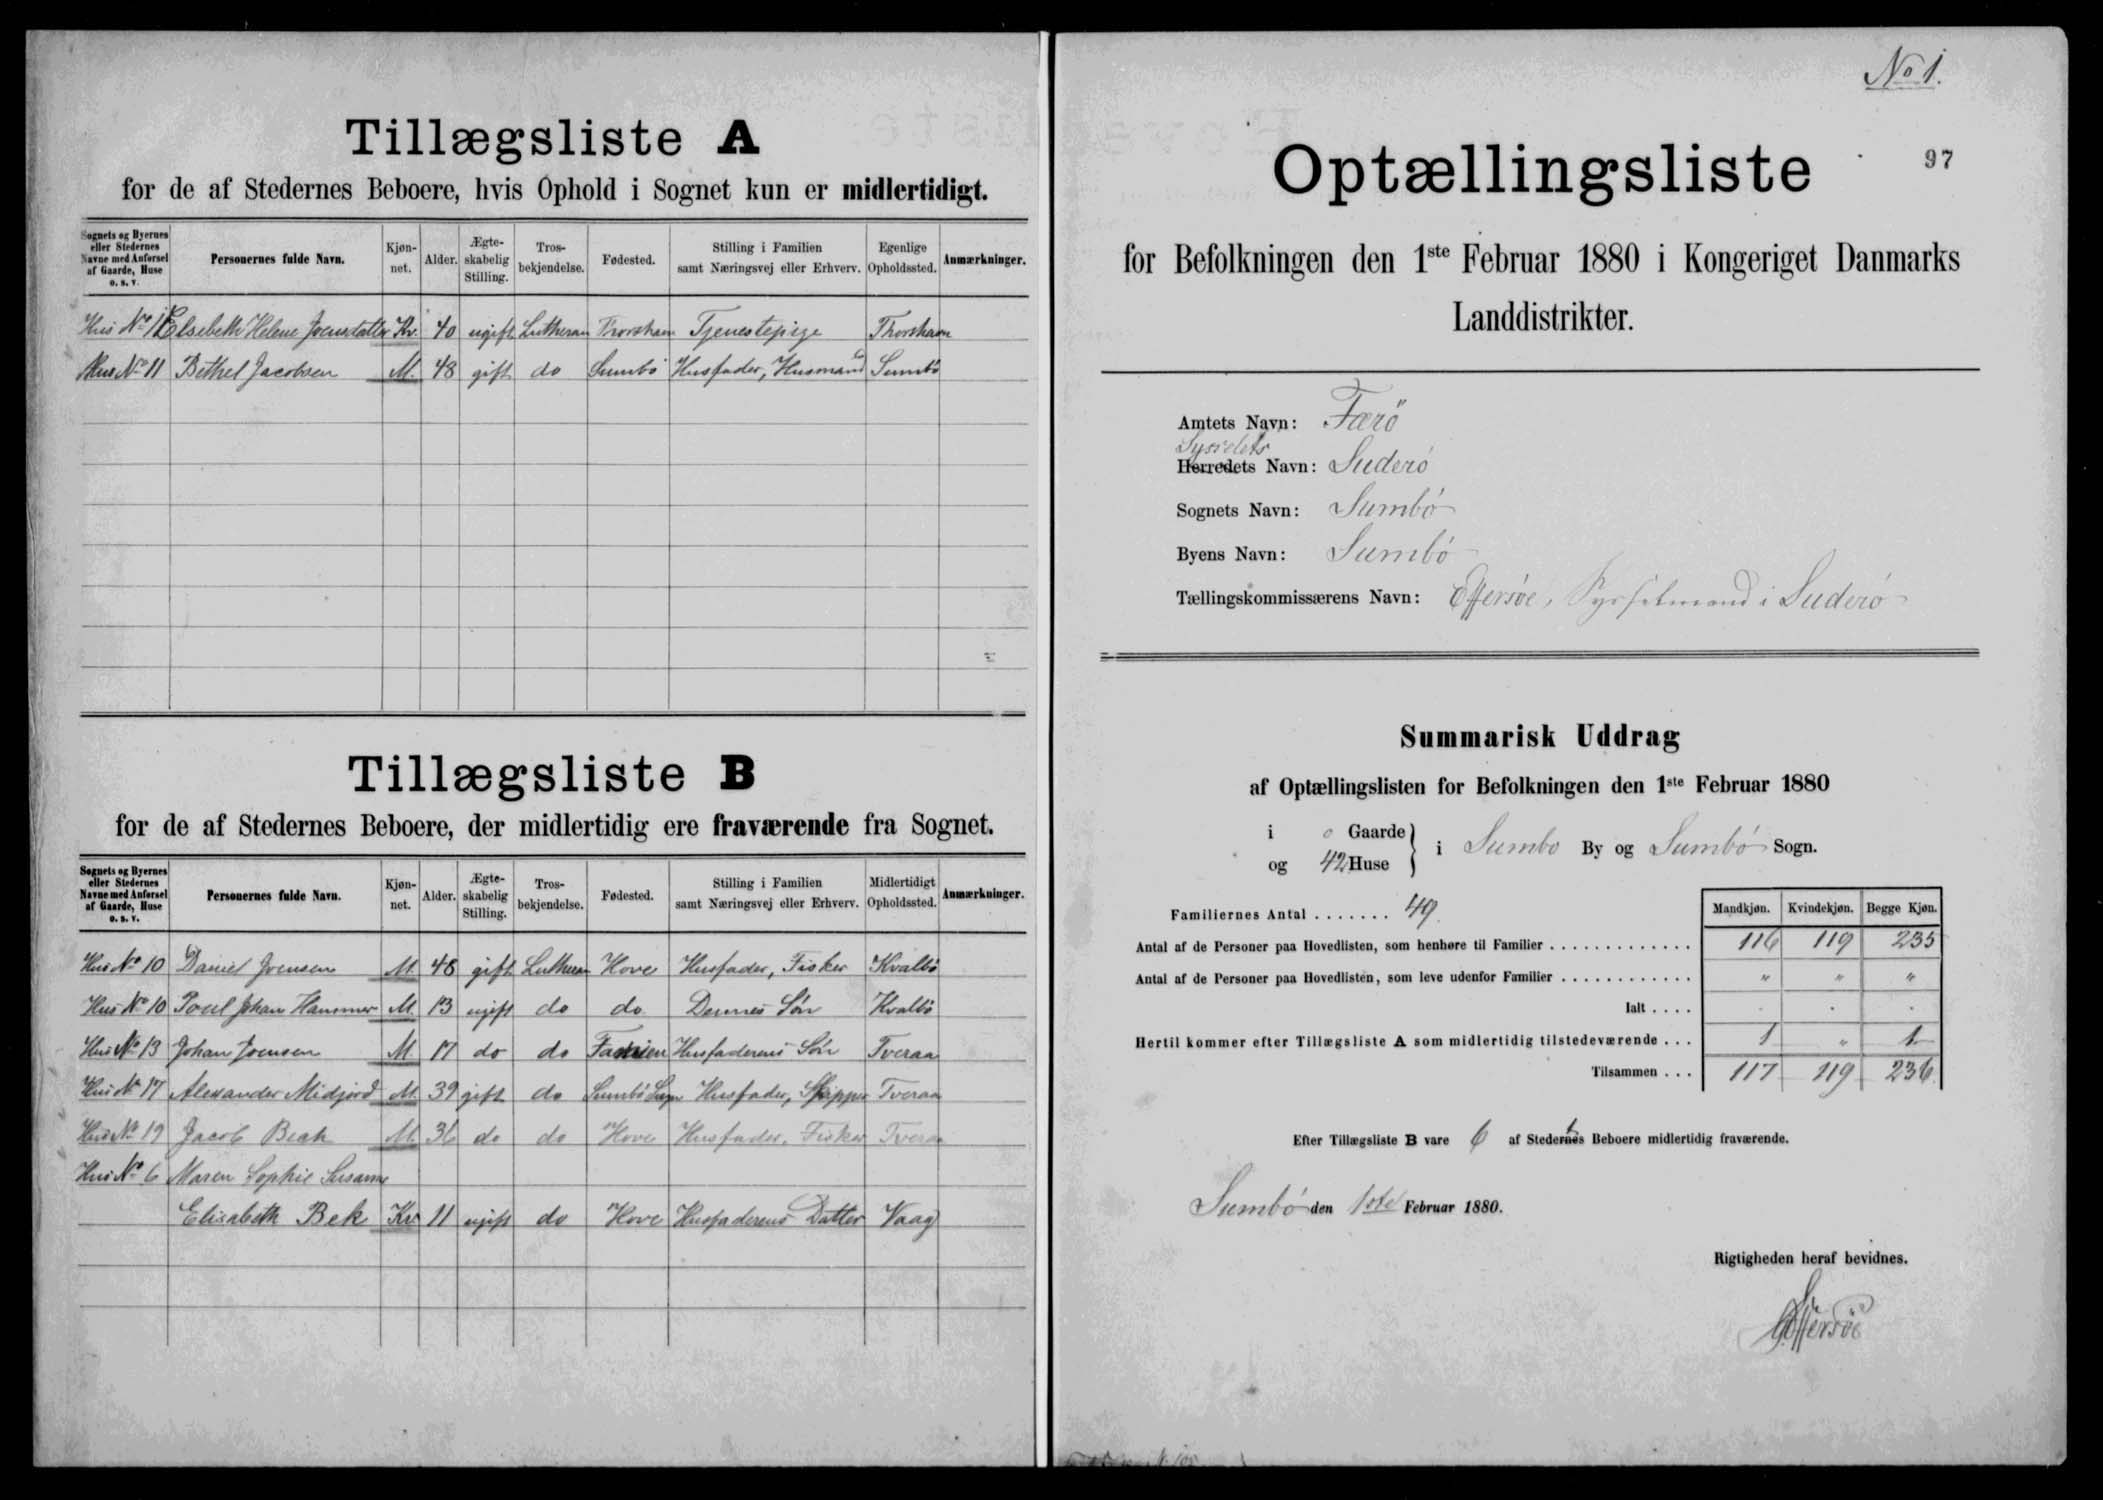 Tillægsliste A
for de af Stedernes Beboere, hvis Ophold i Sognet kun er midlertidigt.
Sognets og Byernes eller Stedernes Navne med Anførsel af Gaarde, Huse o. s. v. Personernes fulde Navn. Kjøn-net. Alder. Ægte-skabelig Stilling. Tros-bekjendelse. Fødested. Stilling i Familien samt Næringsvej eller Erhverv. Egenlige Opholdssted. Anmærkninger.
Hus No Elsebeth Helene Joensdatter Kv. 40 ugift Lutheran Thorshavn Tjenestepige Thorshavn
Hus No 11 Bethel Jacobsen M. 48 gift do Sumbö Husfader, Husmand Sumbö
Tillægsliste B
for de af Stedernes Beboere, der midlertidig ere fraværende fra Sognet.
Sognets og Byernes eller Stedernes Navne med Anførsel af Gaarde, Huse o. s. v. Personernes fulde Navn. Kjøn-net. Alder. Ægte-skabelig Stilling. Tros-bekjendelse. Fødested. Stilling i Familien samt Næringsvej eller Erhverv. Midlertidigt Opholdssted. Anmærkninger.
Hus No 10 Daniel Joensen M. 48 gift Lutheran Hove Husfader, Fisker Kvalbö
Hus No 10 Poul Johan Hammer M. 13 ugift do do Dennes Søn Kvalbö
Hus No 13 Johan Joensen M 17 do do Famien Husfaderens Søn Tveraa
Hus No 17 Alexander Midjord M. 39 gift do Sumbö Sogn Husfader, Skipper Tveraa
Hus No 19 Jacob Beck M. 36 do do Hove Husfader, Fisker Tveraa
Hus No 6 Maren Sophie Susanne
Elisabeth Bek Kv 11 ugift do Hove Husfaderens Datter Vaag
No 1.
97
Optællingsliste
for Befolkningen den 1ste Februar 1880 i Kongeriget Danmarks
Landdistrikter.
Amtets Navn: Færö
Sysselets
Herredets Navn: Suderö
Sognets Navn: Sumbö
Byens Navn: Sumbö
Tællingskommissærens Navn: Effersøe, Sysselmand i Suderö
Summarisk Uddrag
af Optællingslisten for Befolkningen den 1ste Februar 1880
i o Gaarde
og 42 Huse
i Sumbo By og Sumbö Sogn.
Mandkjøn. Kvindekjøn. Begge Kjøn.
Familiernes Antal ....... 49
Antal af de Personer paa Hovedlisten, som henhøre til Familier ............. 116 119 235
Antal af de Personer paa Hovedlisten, som leve udenfor Familier ............ " " "
Ialt .... . . .
Hertil kommer efter Tillægsliste A som midlertidig tilstedeværende ... 1 " 1
Tilsammen ... 117 119 236
Efter Tillægsliste B vare 6 af Stedernes Beboere midlertidig fraværende.
Sumbö den 1ste Februar 1880.
Rigtigheden heraf bevidnes.
Effersøe